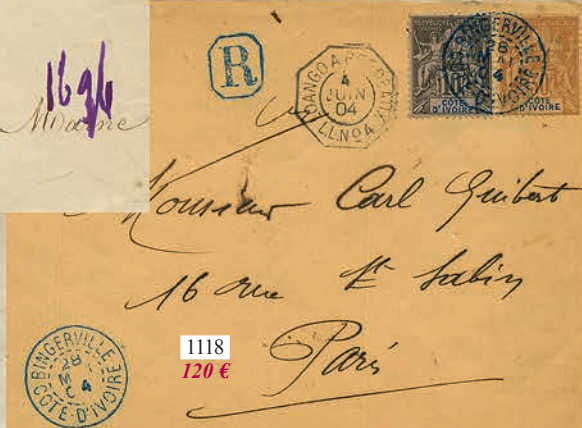 1694
R
LOANGO A BORDEAUX
4
JUIN
04
L.L. N°4
BINGERVILLE
28
MAI
04
CÔTE D'IVOIRE
CÔTE D'IVOIRE
CÔTE D'IVOIRE
Monsieur Carl Guibert
16 rue St Sabin
Paris
BINGERVILLE
28
M
04
CÔTE D'IVOIRE
1118
120 €